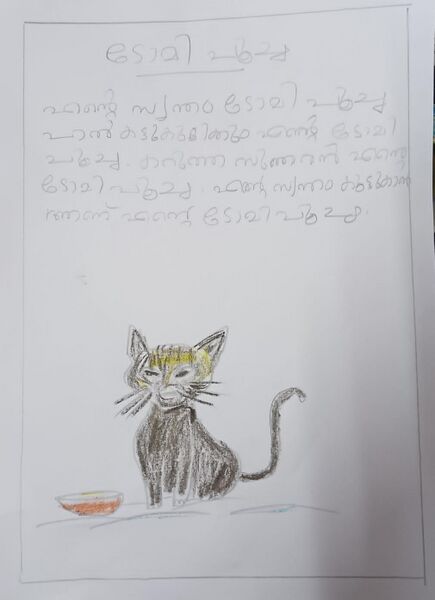 ടോമി പൂച്ച
എന്റെ സ്വന്തം ടോമി പൂച്ച
പാൽ കട്ടുകുടിക്കും എന്റെ ടോമി
പൂച്ച. കറുത്ത സുന്ദരൻ എന്റെ
ടോമി പൂച്ച. എന്റെ സ്വന്തം കൂട്ടുകാരൻ
ആണ് എന്റെ ടോമി പൂച്ച.